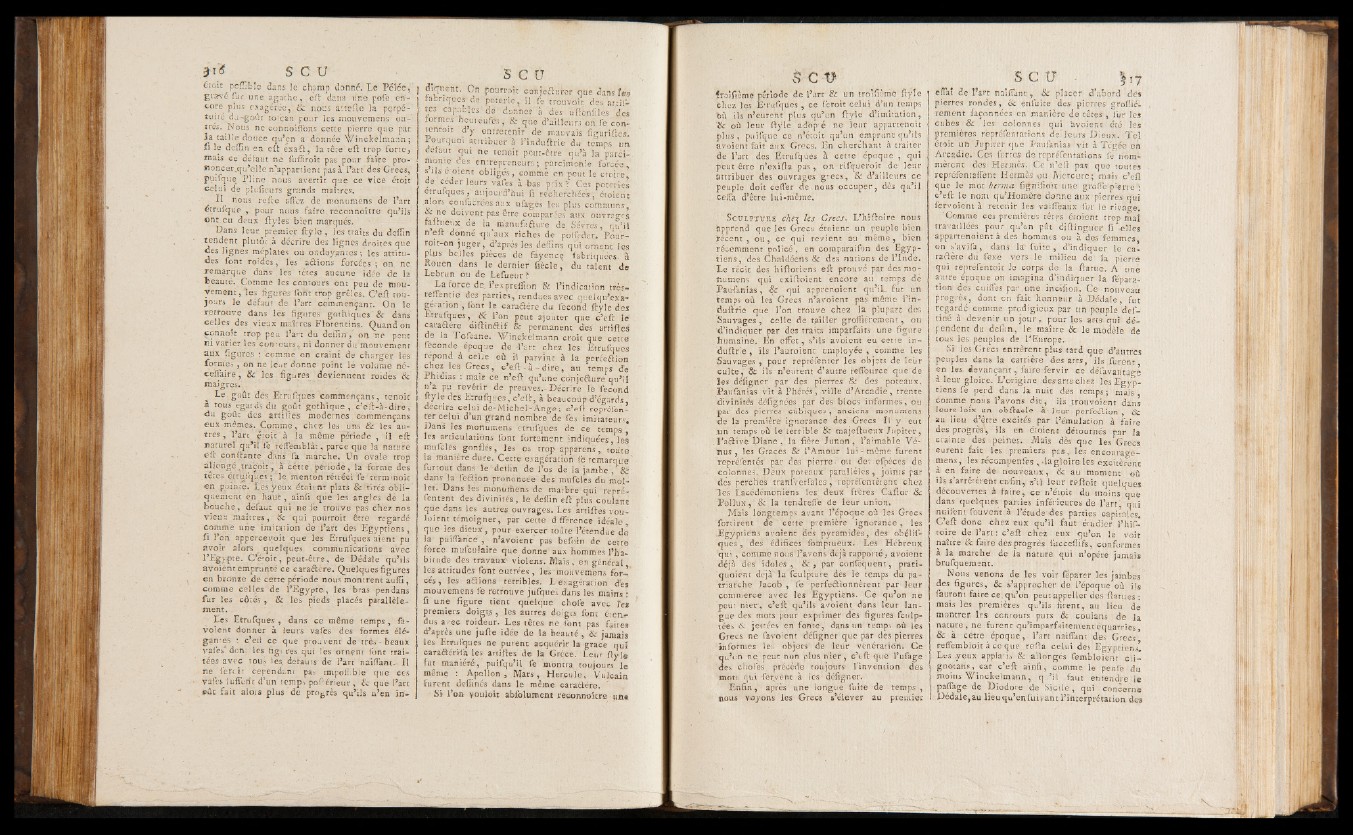 316 SCU
étoit poſſible dans le champ donné. Le Pélée,
gravé ſur une agathe, eſt dans une poſe en-
core plus exagérée, & nous atteſte la perpé-
tuité du goût toſcan pour les mouvemens ou-
trés. Nous ne connoiſſons cette pierre que par
la taille douce qu'en a donnée Winckelmann;
ſi le deſſin en eſt exact, la tête eſt trop forte;
mais ce défaut ne ſuffiroit pas pour faire pro-
noncer qu'elle n'appartient pas à l'art des Grecs,
puiſque Pline nous avertit que ce vice étoit
celui de pluſieurs grands maîtres.
Il nous reſte aſſez de monumens de l'art
étruſque, pour nous faire reconnoître qu'ils
ont eu deux ſtyles bien marqués.
Dans leur premier ſtyle, les traits du deſſin
tendent plutôt à décrire des lignes droites que
des lignes méplates ou ondoyantes; les attitu-
des ſont roides, les actions forcées; on ne
remarque dans les têtes aucune idée de la
beauté. Comme les contours ont peu de mou-
vement, les figures ſont trop grêles. C'eſt tou-
jours le défaut de l'art commençant. On le
retrouve dans les figures gothiques & dans
celles des vieux maîtres Florentins. Quand on
connoît trop peu l'art du deſſin, on ne peut
ni varier les contours, ni donner du mouvement
aux figures: comme on craint de charger les
formes, on ne leur donne point le volume né-
ceſſaire, & les figures deviennent roides &
maigres.
Le goût des Etruſques commençans, tenoit
à tous égards du goût gothique, c'eſt-à-dire,
du goût des artiſtes modernes commençans
eux mêmes. Comme, chez les uns & les au-
tres, l'art étoit à la même période, il eſt
naturel qu'il ſe reſſemblât, parce que la nature
eſt conſtante dans ſa marche. Un ovale trop
allongé traçoit, à cette période, la forme des
têtes étruſques; le menton rétréci ſe terminoit
en pointe. Les yeux étoient plats & tirés obli-
quement en haut, ainſi que les angles de la
bouche, défaut qui ne ſe trouve pas chez nos
vieux maîtres, & qui pourroit être regardé
comme une imitation de l'art des Egyptiens,
ſi l'on appercevoit que les Etruſques aient pu
avoir alors quelques communications avec
l'Egypte. C'étoit, peut-être, de Dédale qu'ils
avoient emprunté ce caractère. Quelques figures
en bronze de cette période nous montrent auſſi,
comme celles de l'Egypte, les bras pendans
ſur les côtés, & les pieds placés parallèle-
ment.
Les Etruſques, dans ce même temps, ſa-
voient donner à leurs vaſes des formes élé-
gantes: c'eſt ce que prouvent de très-beaux
vaſes dont les figures qui les ornent ſont trai-
tées avec tous les défauts de l'art naiſſant. Il
ne ſeroit cependant pas impoſſible que ces
vaſes fuſſent d'un temps poſtérieur, & que l'art
eût fait alors plus de progrès qu'ils n'en in-
SCU
diquent. On pourroit conjecturer que dans les
fabriques de poterie, il ſe trouvoit des artiſ-
tes capables de donner à des uſtenſiles des
formes heureuſes, & que d'ailleurs on ſe con-
tentoit d'y entretenir de mauvais figuriſtes.
Pourquoi attribuer à l'induſtrie du temps un
défaut qui ne tenoit peut-être qu'à la parci-
monie des entrepreneurs; parcimonie forcée,
s'ils étoient obligés, comme on peut le croire,
de céder leurs vaſes à bas prix? Ces poteries
étruſques, aujourd'hui ſi recherchées, étoient
alors conſacrées aux uſages les plus communs,
& ne doivent pas être comparées aux ouvrages
faſtueux de la manufacture de Sèvres, qu'il
n'eſt donné qu'aux riches de poſſéder. Pour-
roit-on juger, d'après les deſſins qui ornent les
plus belles pièces de fayence fabriquées à
Rouen dans le dernier ſiècle, du talent de
Lebrun ou de Leſueur?
La force de l'expreſſion & l'indication très-
reſſentie des parties, rendues avec quelqu'exa-
gération, ſont le caractère du ſecond ſtyle des
Etruſques, & l'on peut ajouter que c'eſt le
caractère diſtinctif & permanent des artiſtes
de la Toſcane. Winckelmann croit que cette
ſeconde époque de l'art chez les Etruſques
répond à celle où il parvint à la perfection
chez les Grecs, c'eſt-à-dire, au temps de
Phidias: mais ce n'eſt qu'une conjecture qu'il
n'a pu revêtir de preuves. Décrire le ſecond
ſtyle des Etruſques, c'eſt, à beaucoup d'égards,
décrire celui de Michel-Ange; c'eſt repréſen-
ter celui d'un grand nombre de ſes imitateurs.
Dans les monumens étruſques de ce temps,
les articulations ſont fortement indiquées, les
muſcles gonflés, les os trop apparens, toute
la manière dure. Cette exagération ſe remarque
ſurtout dans le deſſin de l'os de la jambe, &
dans la ſection prononcée des muſcles du mol-
let. Dans les monumens de marbre qui repré-
ſentent des divinités, le deſſin eſt plus coulant
que dans les autres ouvrages. Les artiſtes vou-
loient témoigner, par cette différence idéale,
que les dieux, pour exercer toute l'étendue de
la puiſſance, n'avoient pas beſoin de cette
force muſculaire que donne aux hommes l'ha-
bitude des travaux violens. Mais, en général,
les attitudes ſont outrées, les mouvemens for-
cés, les actions terribles. L'exagération des
mouvemens ſe retrouve juſques dans les mains:
ſi une figure tient quelque choſe avec les
premiers doigts, les autres doigts ſont éten-
dus avec roideur. Les têtes ne ſont pas faites
d'après une juſte idée de la beauté, & jamais
les Etruſques ne purent acquérir la grace qui
caractériſa les artiſtes de la Grèce. Leur ſtyle
fut maniéré, puiſqu'il ſe montra toujours le
même: Apollon, Mars, Hercule, Vulcain
furent deſſinés dans le même caractère.
Si l'on vouloit abſolument reconnoître une
SCU
troiſième période de l'art & un troiſième ſtyle
chez les Etruſques, ce ſeroit celui d'un temps
où ils n'eurent plus qu'un ſtyle d'imitation,
& où leur ſtyle adopté ne leur appartenoit
plus, puiſque ce n'étoit qu'un emprunt qu'ils
avoient fait aux Grecs. En cherchant à traiter
de l'art des Etruſques à cette époque, qui
peut être n'exiſta pas, on riſqueroit de leur
attribuer des ouvrages grecs, & d'ailleurs ce
peuple doit ceſſer de nous occuper, dès qu'il
ceſſa d'être lui-même.
SCULPTURE chez les Grecs. L'hiſtoire nous
apprend que les Grecs étaient un peuple bien
récent, ou, ce qui revient au même, bien
récemment policé, en comparaiſon des Egyp-
tiens, des Chaldéens & des nations de l'Inde.
Le récit des hiſtoriens eſt prouvé par des mo-
numens qui exiſtoient encore au temps de
Pauſanias, & qui apprenoient qu'il fut un
temps où les Grecs n'avoient pas même l'in-
duſtrie que l'on trouve chez la plupart des
Sauvages, celle de tailler groſſièrement, ou
d'indiquer par des traits imparfaits une figure
humaine. En effet, s'ils avoient eu cette in-
duſtrie, ils l'auroient employée, comme les
Sauvages, pour repréſenter les objets de leur
culte, & ils n'eurent d'autre reſſource que de
les déſigner par des pierres & des poteaux.
Pauſanias vit à Phérès, ville d'Arcadie, trente
divinités déſignées par des blocs informes, ou
par des pierres cubiques, anciens monumens
de la première ignorance des Grecs. Il y eut
un temps où le terrible & majeſtueux Jupiter,
l'active Diane, la fière Junon, l'aimable Vé-
nus, les Graces & l'Amour lui-même furent
repréſentés par des pierres ou des eſpèces de
colonnes. Deux poteaux parallèles, joints par
des perches tranſverſales, repréſentèrent chez
les Lacédémoniens les deux frères Caſtor &
Pollux, & la tendreſſe de leur union.
Mais longtemps avant l'époque où les Grecs
ſortirent de cette première ignorance, les
Egyptiens avoient des pyramides, des obéliſ-
ques, des édifices ſomptueux. Les Hébreux
qui, comme nous l'avons dejà rapporté, avoient
déjà des idoles, &, par conſéquent, prati-
quoient déjà la ſculpture dès le temps du pa-
triarche Jacob, ſe perfectionnèrent par leur
commerce avec les Egyptiens. Ce qu'on ne
peut nier, c'eſt qu'ils avoient dans leur lan-
gue des mots pour exprimer des figures ſculp-
tées & jettées en fonte, dans un temps où les
Grecs ne ſavoient déſigner que par des pierres
informes les objets de leur vénération. Ce
qu'on ne peut non plus nier, c'eſt que l'uſage
des choſes précède toujours l'invention des
mots qui ſervent à les déſigner.
Enfin, après une longue ſuite de temps,
nous voyons les Grecs s'élever au premier
SCU 317
eſſai de l'art naiſſant, & placer d'abord des
pierres rondes, & enſuite des pierres groſſiè-
rement façonnées en manière de têtes, ſur les
cubes & les colonnes qui avoient été les
premières repréſentations de leurs Dieux. Tel
étoit un Jupiter que Pauſanias vit à Tégée en
Arcadie. Ces ſortes de repréſentations ſe nom-
mèrent des Hermès. Ce n'eſt pas que toutes
repréſentaſſent Hermès ou Mercure; mais c'eſt
que le mot herma ſignifioit une groſſe pierre;
c'eſt le nom qu'Homère donne aux pierres qui
ſervoient à retenir les vaiſſeaux ſur le rivage.
Comme ces premières têtes étoient trop mal
travaillées pour qu'on pût diſtinguer ſi elles
appartenoient à des hommes ou à des femmes,
on s'aviſa, dans la ſuite, d'indiquer le ca-
ractère du ſexe vers le milieu de la pierre
qui repréſentoit le corps de la ſtatue. A une
autre époque on imagina d'indiquer la ſépara-
tion des cuiſſes par une inciſion. Ce nouveau
progrès, dont on fait honneur à Dédale, fut
regardé comme prodigieux par un peuple deſ-
tiné à devenir un jour, pour les arts qui dé-
pendent du deſſin, le maître & le modèle de
tous les peuples de l'Europe.
Si les Grecs entrèrent plus tard que d'autres
peuples dans la carrière des arts, ils ſurent,
en les devançant, faire ſervir ce déſavantage
à leur gloire. L'origine des arts chez les Egyp-
tiens ſe perd dans la nuit des temps; mais,
comme nous l'avons dit, ils trouvoient dans
leurs loix un obſtacle à leur perfection, &
au lieu d'être excités par l'émulation à faire
des progrès, ils en étoient détournés par la
crainte des peines. Mais dès que les Grecs
eurent fait les premiers pas, les encourage-
mens, les récompenſes, la gloire les excitèrent
à en faire de nouveaux, & au moment où
ils s'arrêtèrent enfin, s'il leur reſtoit quelques
découvertes à faire, ce n'étoit du moins que
dans quelques parties inférieures de l'art, qui
nuiſent ſouvent à l'étude des parties capitales.
C'eſt donc chez eux qu'il faut étudier l'hiſ-
toire de l'art: c'eſt chez eux qu'on le voit
naître & faire des progrès ſucceſſifs, conformes
à la marche de la nature qui n'opère jamais
bruſquement.
Nous venons de les voir ſéparer les jambes
des figures, & s'approcher de l'époque où ils
ſauront faire ce qu'on peut appeller des ſtatues:
mais les premières qu'ils firent, au lieu de
montrer les contours purs & coulans de la
nature, ne furent qu'imparfaitement équarries,
& à cette époque, l'art naiſſant des Grecs,
reſſembloit à ce que reſta celui des Egyptiens.
Les yeux applatis & allongés ſembloient cli-
gnotans, car c'eſt ainſi, comme le penſe du
moins Winckelmann, qu'il faut entendre le
paſſage de Diodore de Sicile, qui concerne
Dédale, au lieu qu'en ſuivant l'interprétation des